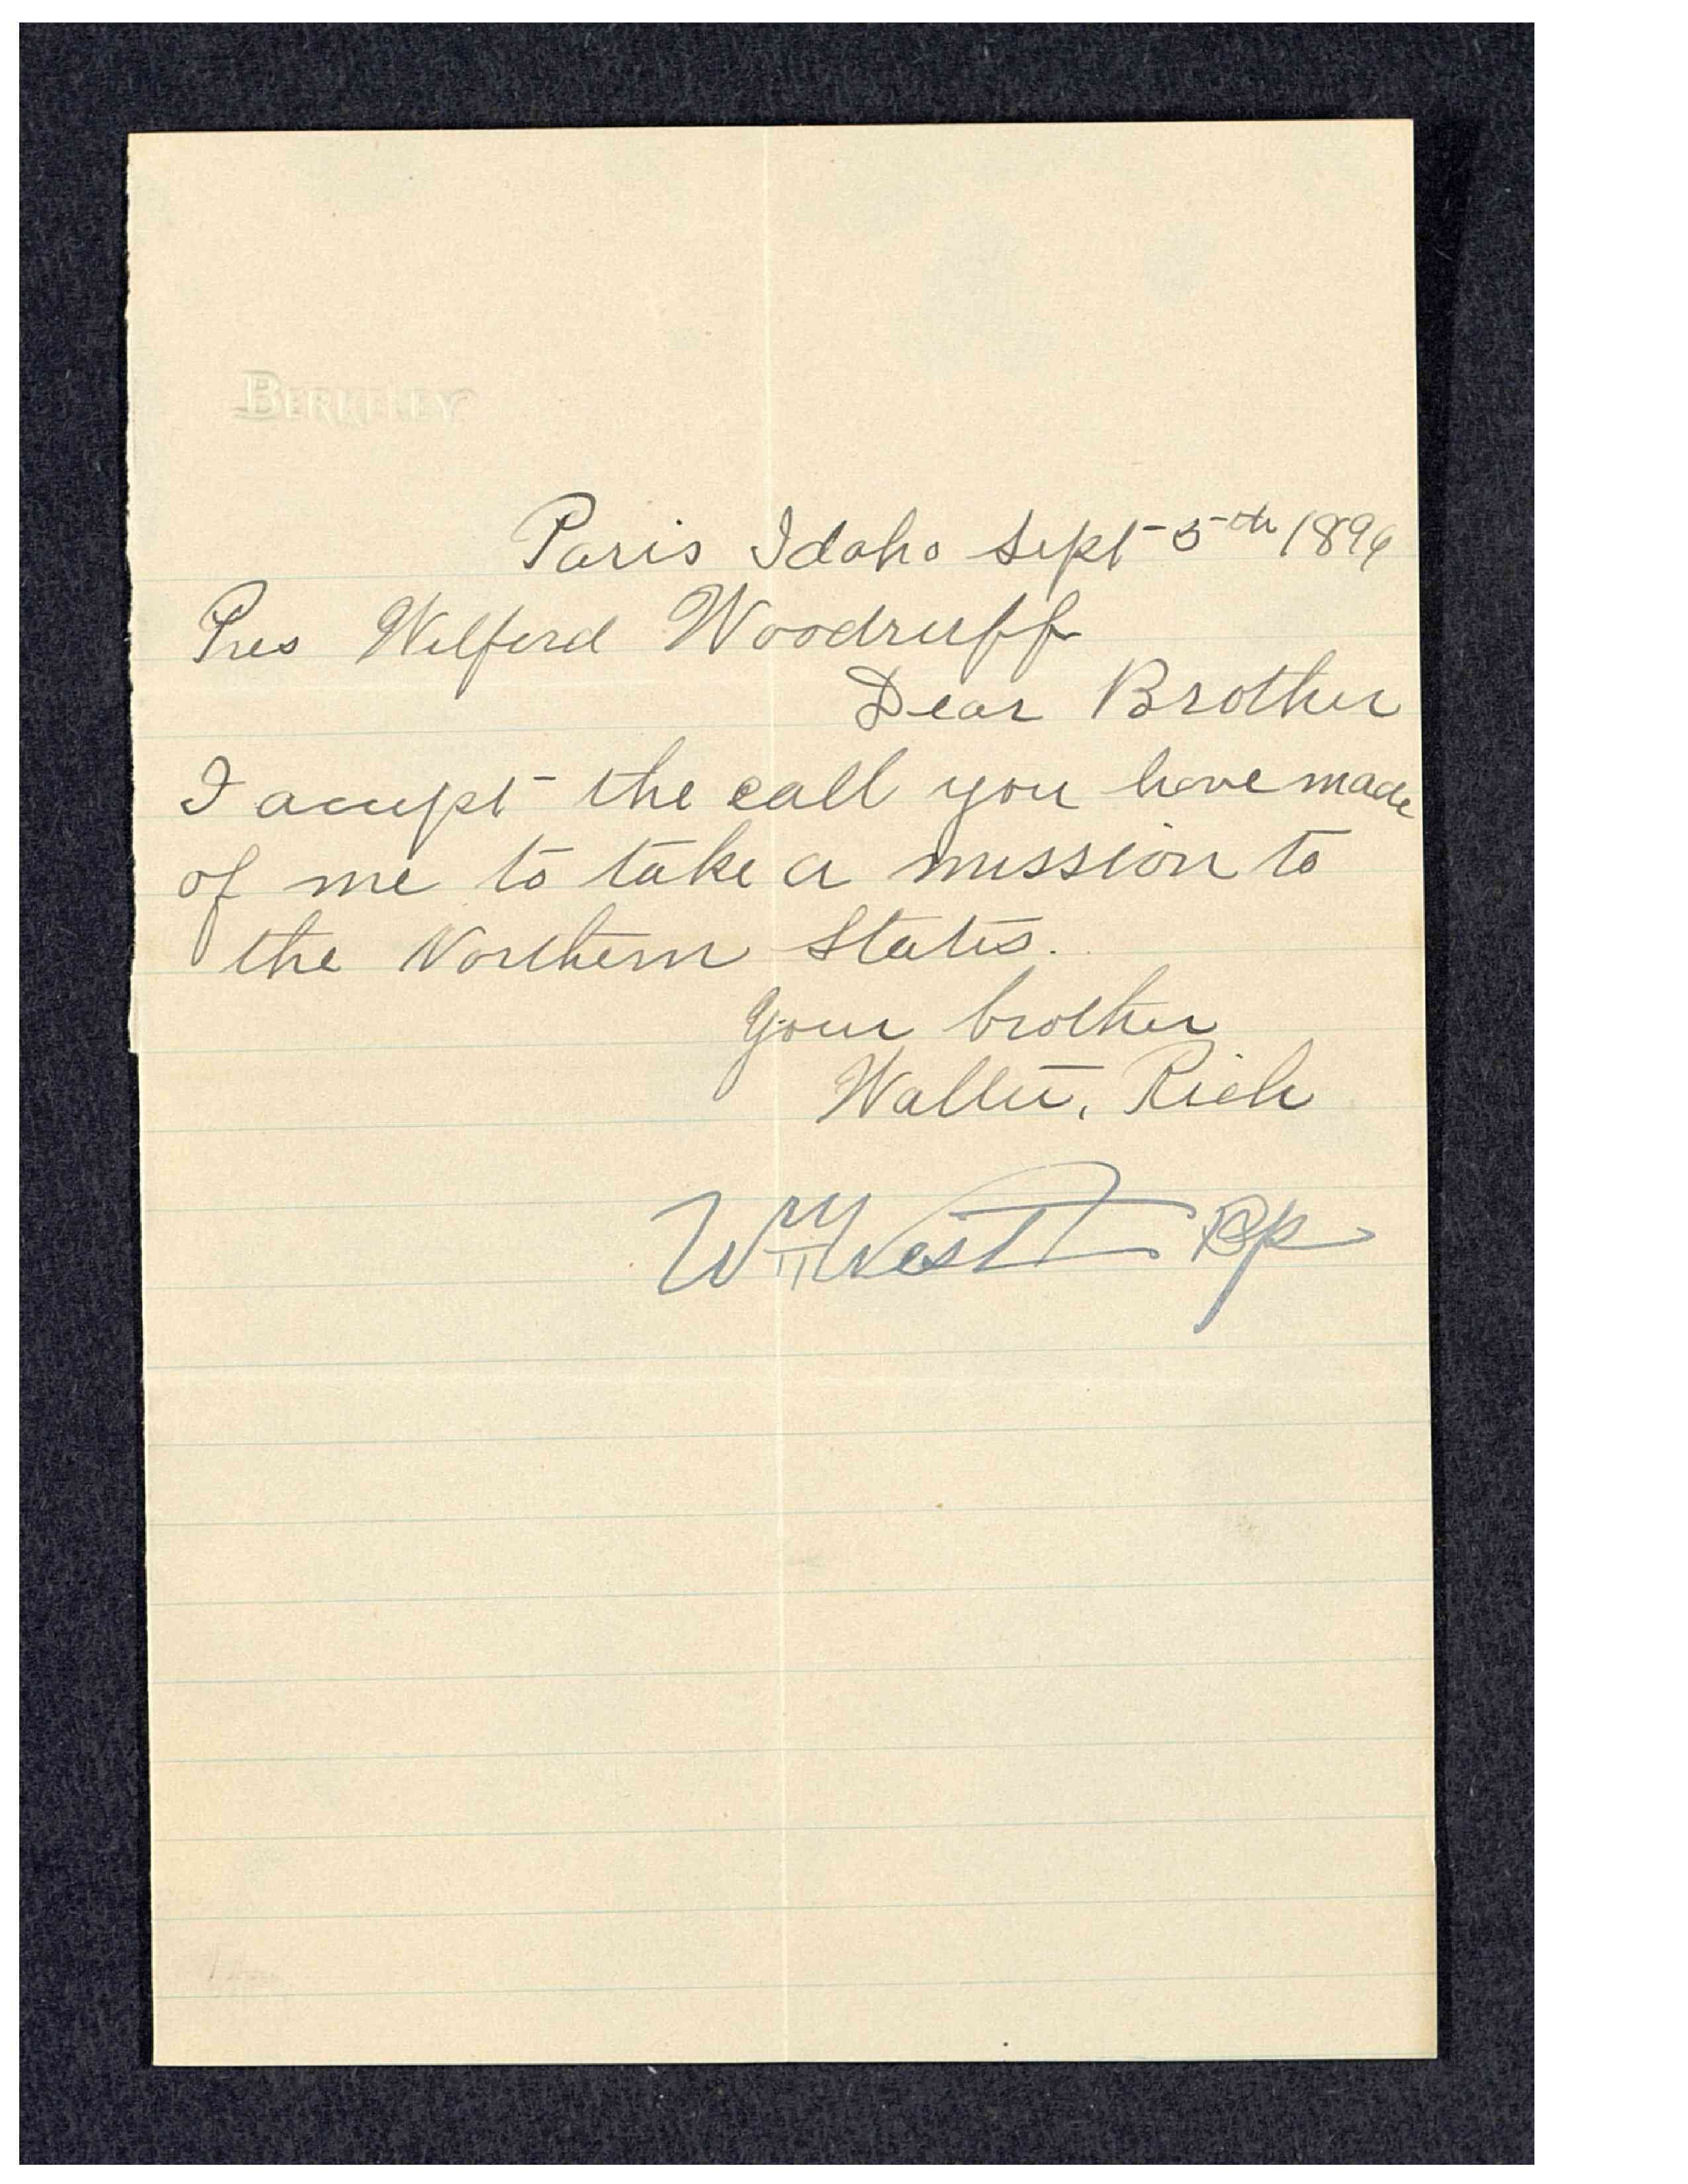 BERKELEY
Paris Idaho Sept 5th 1896
Pres Wilford Woodruff
Dear Brother
I accept the call you have made
of me to take a mission to
the Northern States.
Your brother
Walter. Rich
Wm West Bp